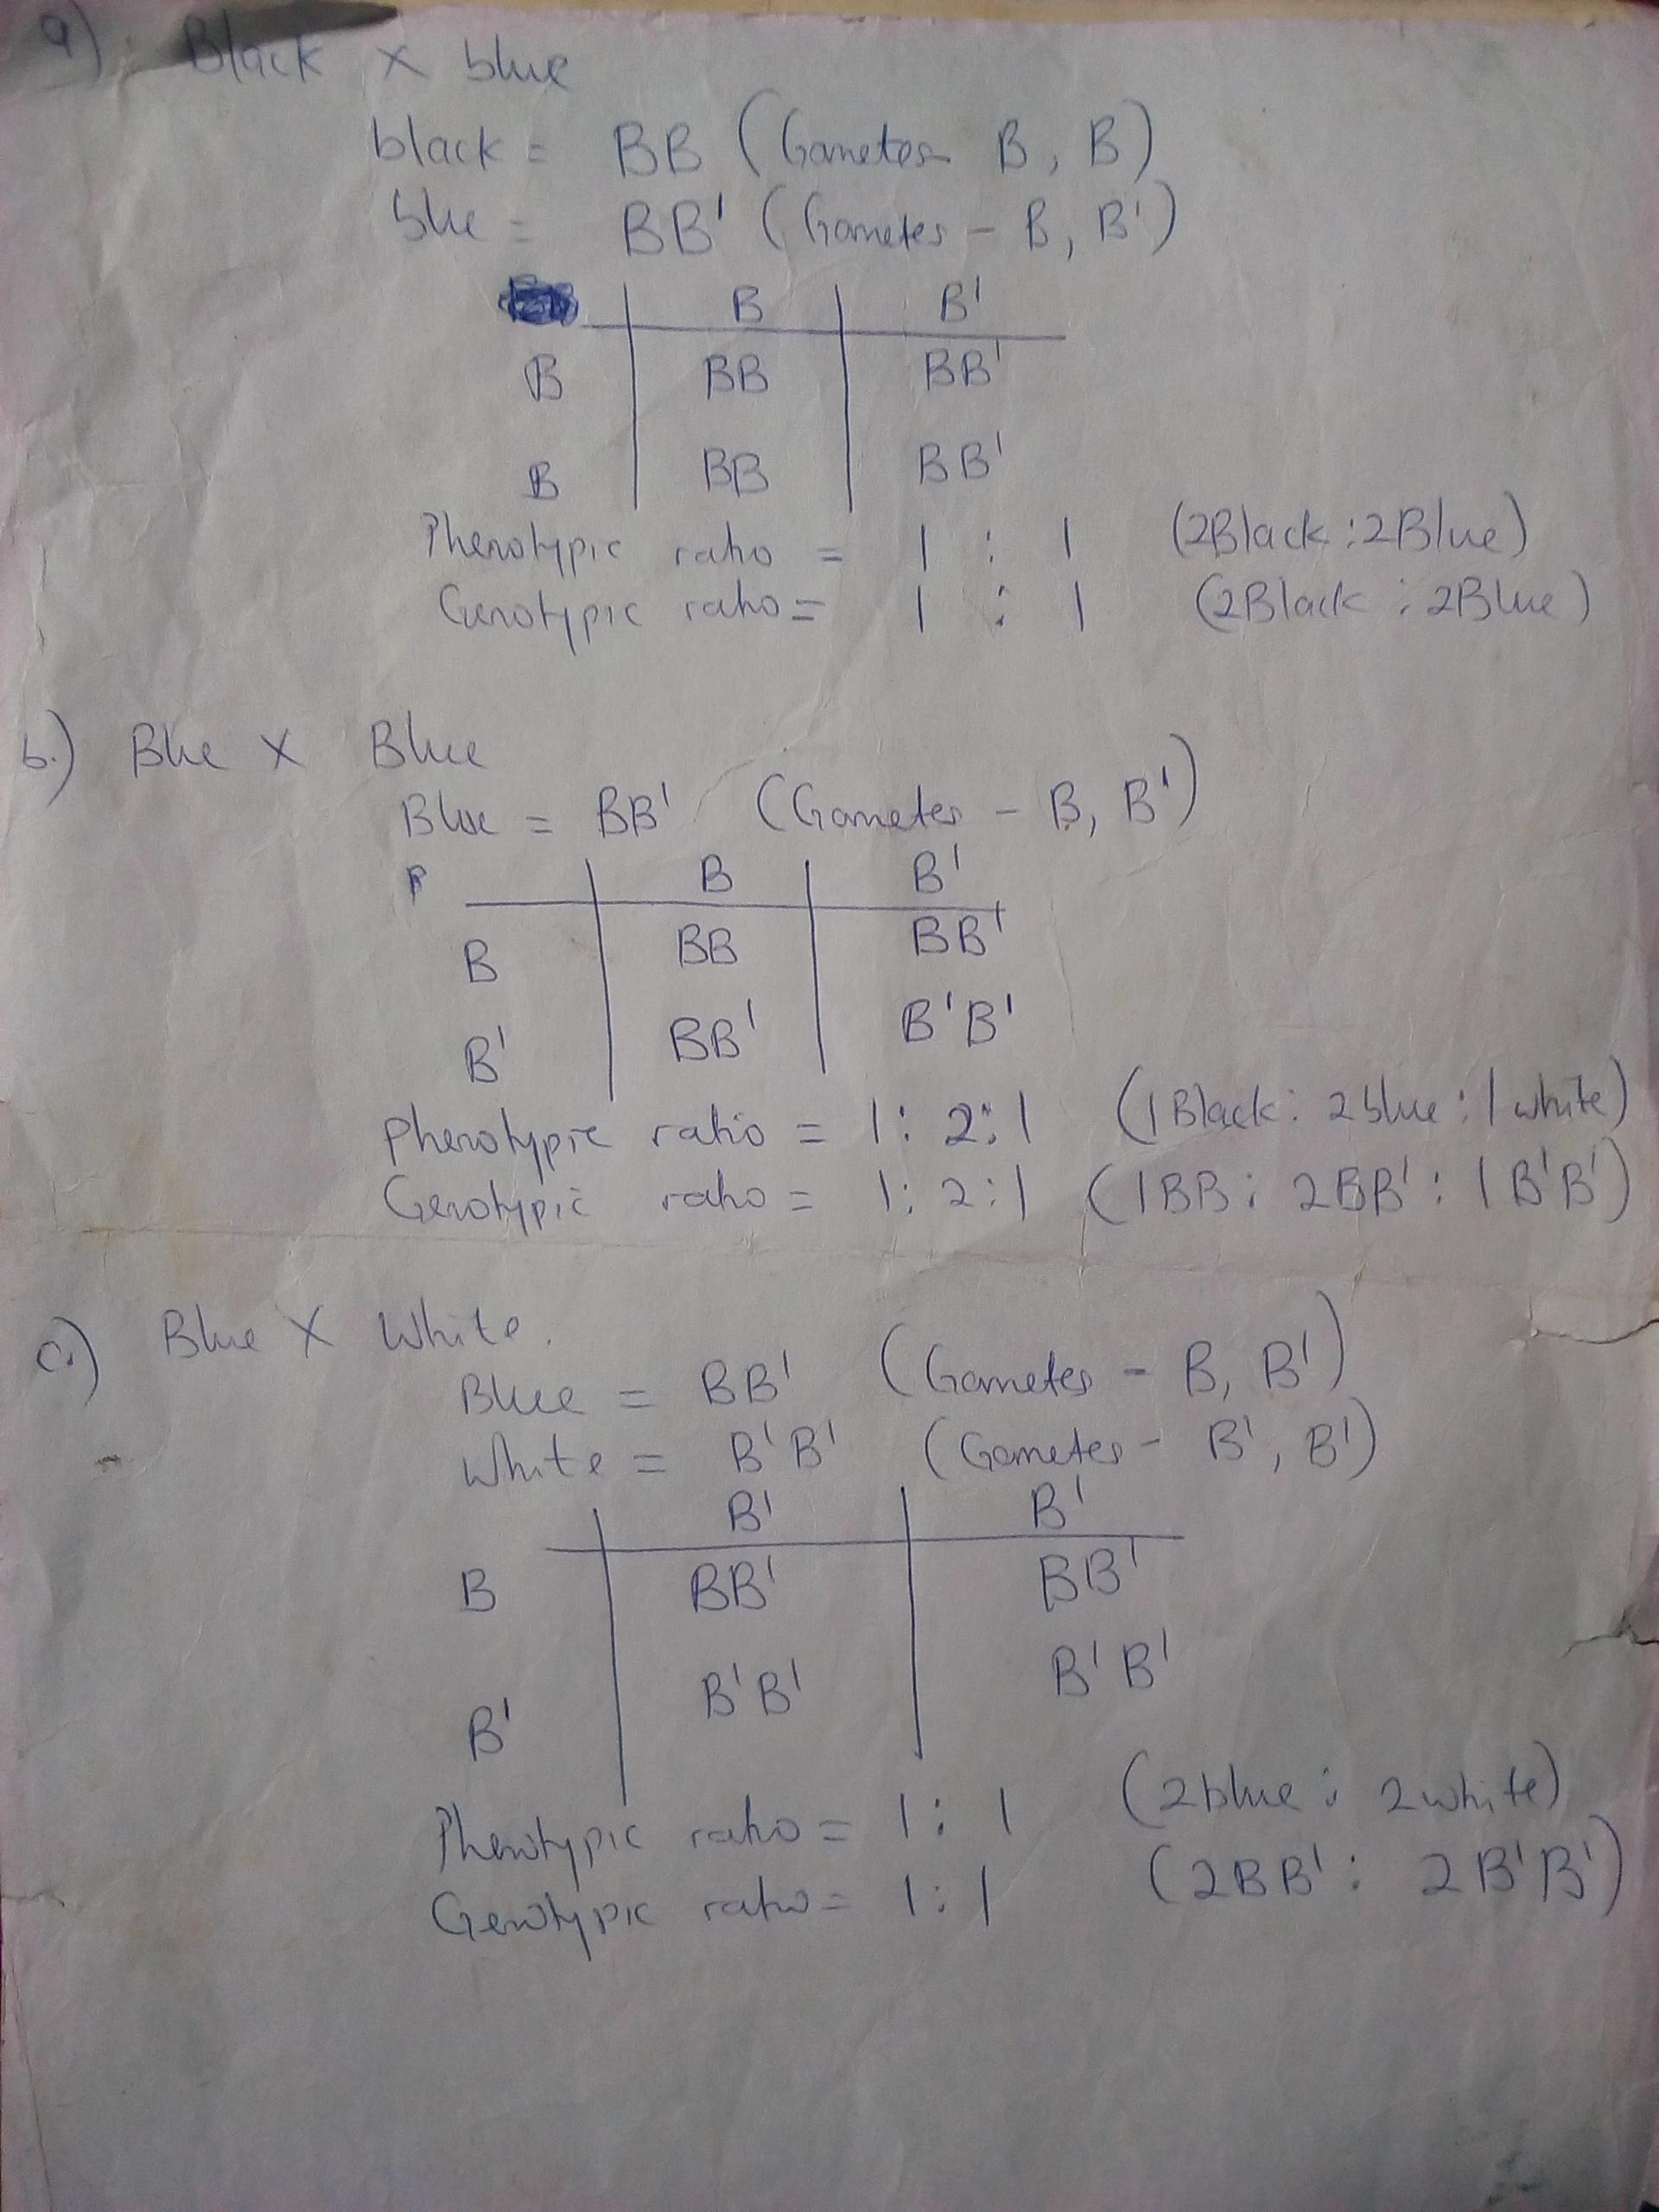 a) Black X blue
black = BB (Gametes - B, B)
blue = BB' (Gametes - B, B')
B B'
B BB BB'
B BB BB'
Phenotypic ratio = 1 : 1 (2Black : 2Blue)
Genotypic ratio = 1 : 1 (2Black : 2Blue)
b.) Blue X Blue
Blue = BB' (Gametes - B, B')
B B'
B BB BB'
B' BB' B'B'
Phenotypic ratio = 1 : 2 : 1 (1Black : 2blue : 1white)
Genotypic ratio = 1 : 2 : 1 (1BB : 2BB' : 1B'B')
c.) Blue X White.
Blue = BB' (Gametes - B, B')
White = B'B' (Gametes - B', B')
B' B'
B BB' BB'
B' B'B' B'B'
Phenotypic ratio = 1 : 1 (2blue : 2white)
Genotypic ratio = 1 : 1 (2BB' : 2B'B')